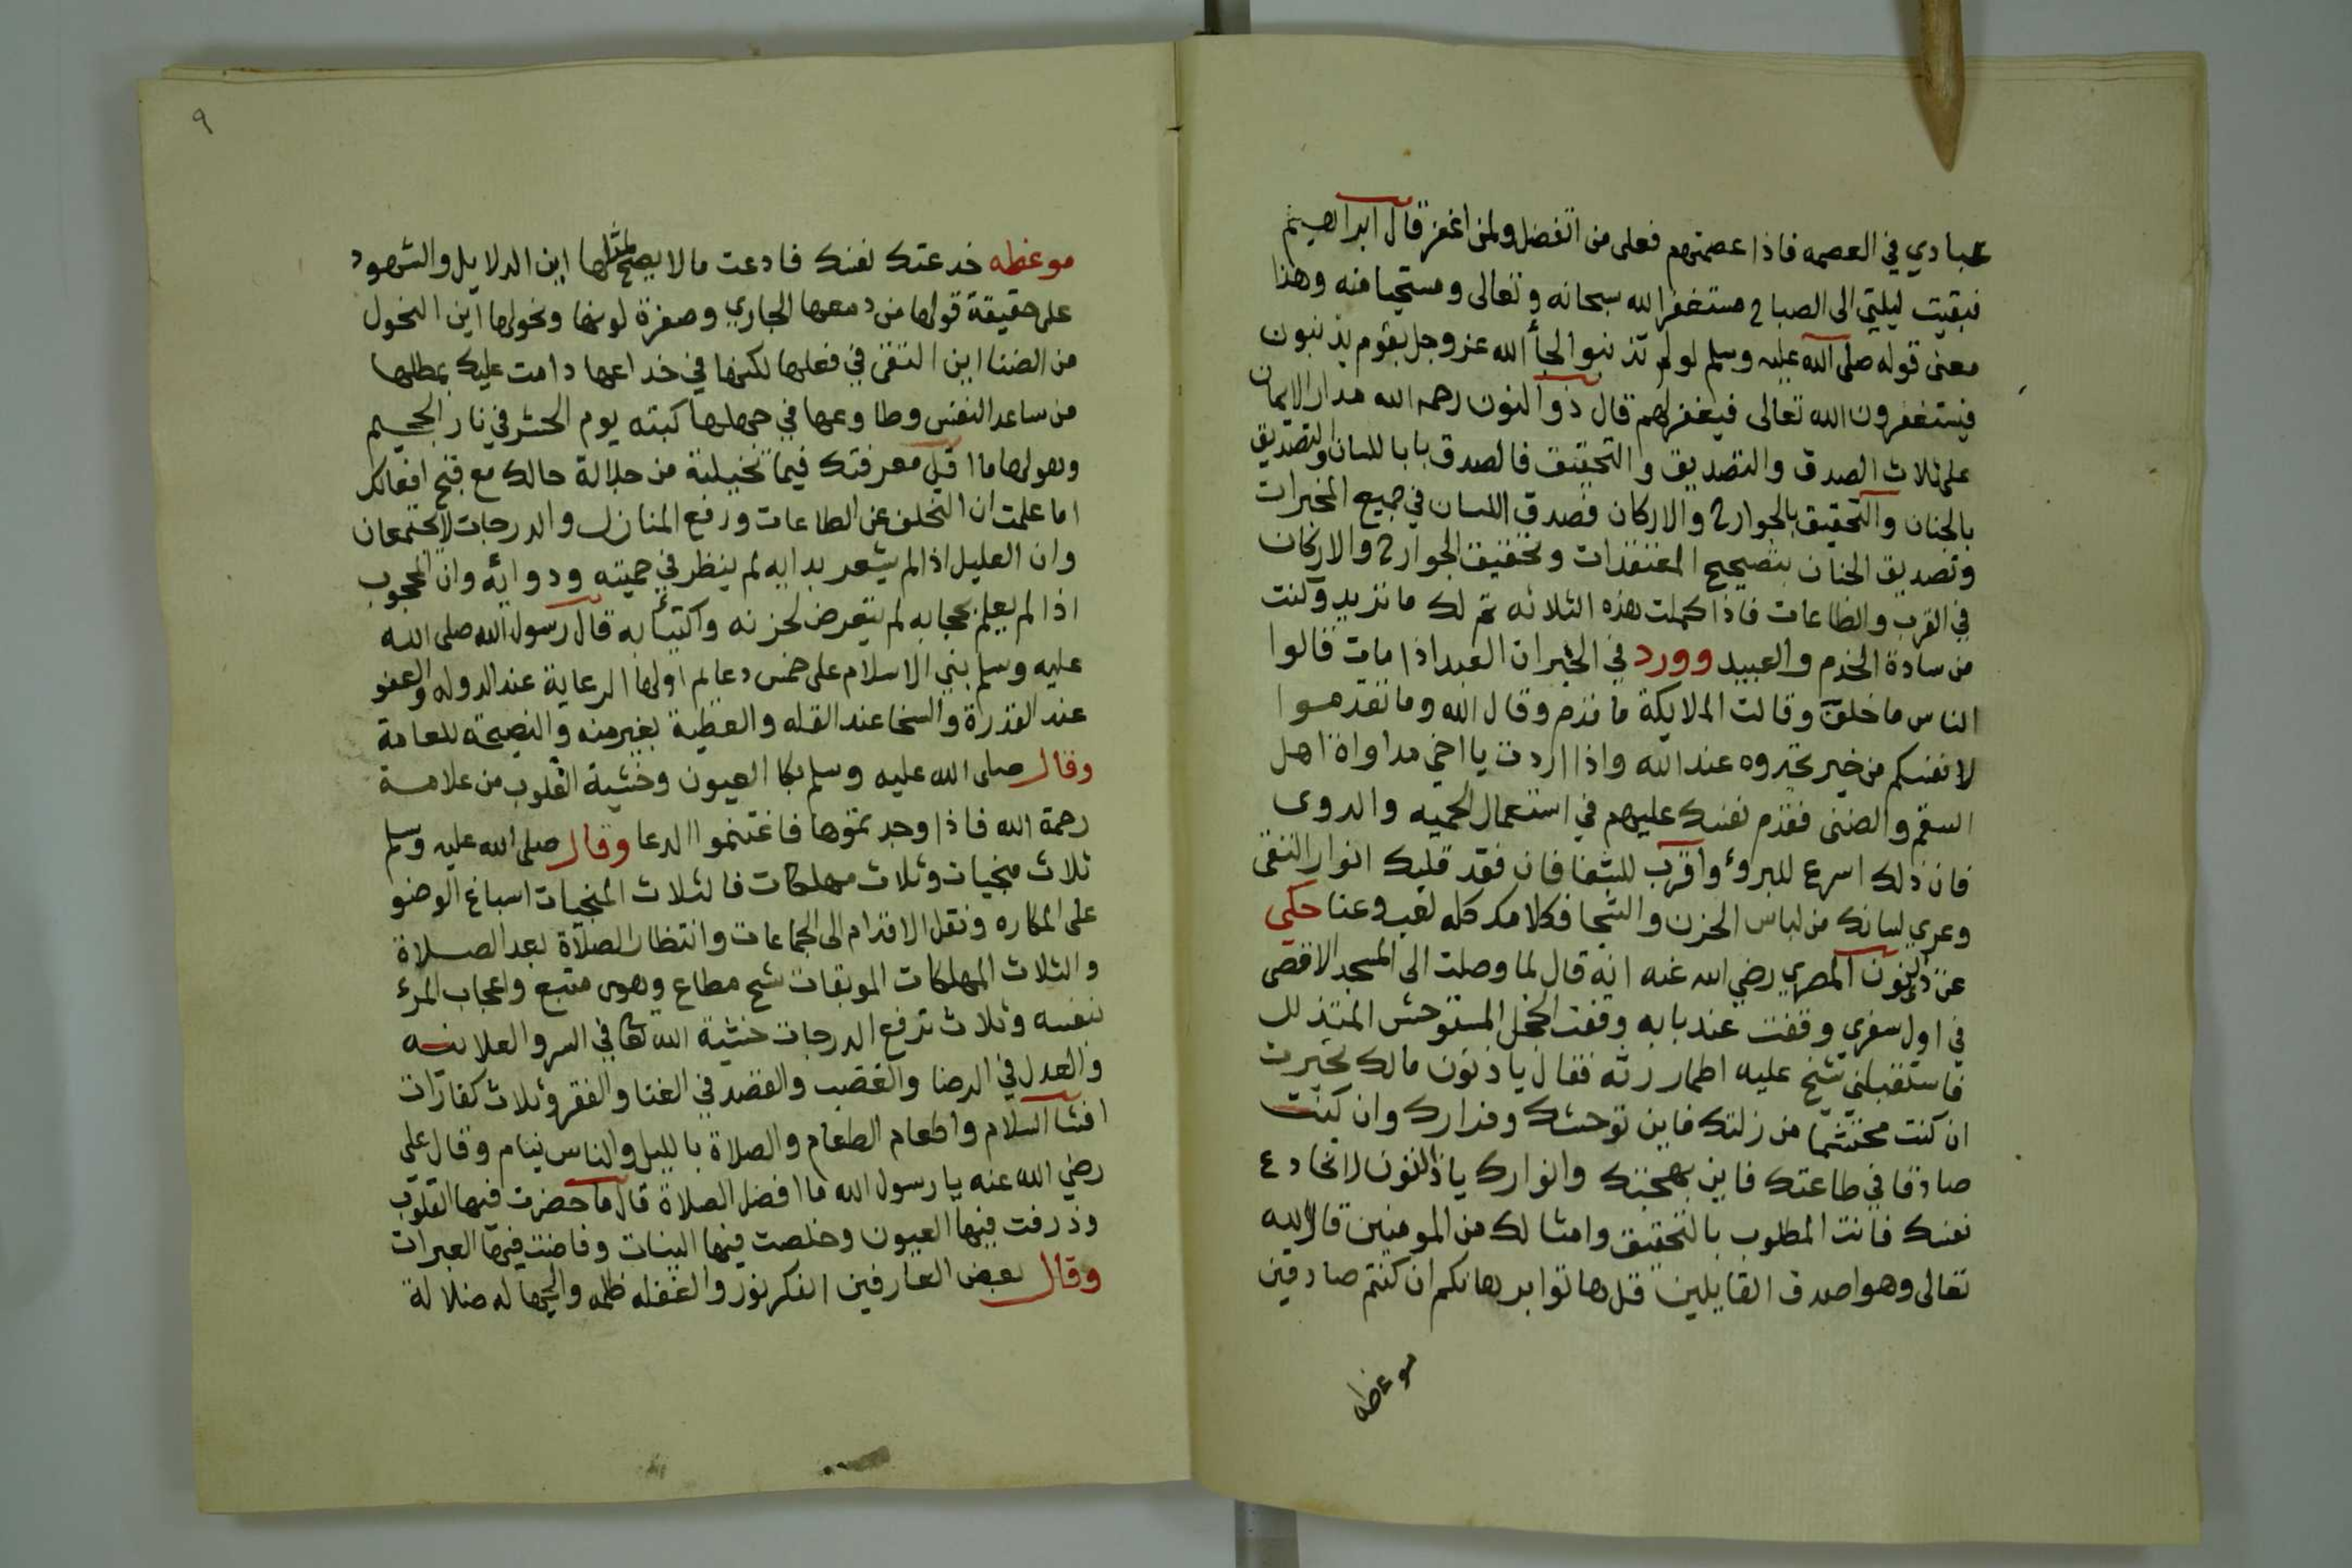 عبادي في العصمه فاذا عصمتهم فعلى من اتفضل ولمن اغفر قال ابراهيم
فبقيت ليلتي الى الصباح مستغفر الله سبحانه وتعالى ومستحيا منه وهذا
معنى قوله صلى الله عليه وسلم لو لم تذنبوا لجأ الله عز وجل بقوم يذنبون
فيستغفرون الله تعالى فيغفر لهم قال ذو النون رحمه الله مدار الايمان
على ثلاث الصدق والتصديق والتحقيق فالصدق بابا للسان والتصديق
بالجنان والتحقيق بالجوارح والاركان فصدق اللسان في جميع المخبرات
وتصديق الجنان بتصحيح المعتقدات وتحقيق الجوارح والاركان
في القرب والطاعات فاذا كملت هذه الثلاثه تم لك ما تريد وكنت
من سادة الخدم والعبيد وورد في الخبر ان العبد اذا مات قالوا
الناس ما خلق وقالت الملايكة ما قدم وقال الله وما تقدموا
لانفسكم من خير تجدوه عند الله واذا اردت يا اخي مداواة اهل
السقم والضنى فقدم نفسك عليهم في استعمال الحميه والدوى
فان ذلك اسرع للبروء واقرب للشفا فان فقد قلبك انوار التقى
وعري لسانك من لباس الحزن والشجا فكلامك كله لعب وعنا حكي
عن ذي النون المصري رضي الله عنه انه قال لما وصلت الى المسجد الاقصى
في اول سفري وقفت عند بابه وقفت الخجل المستوحش المتذلل
فاستقبلني شيخ عليه اطمار رثه فقال ياذنون مالك تحيرت
ان كنت محتشما من زلتك فاين توحشك وفرارك وان كنت
صادقا في طاعتك فاين بهجتك وانوارك ياذالنون لا تخادع
نفسك فانت المطلوب بالتحقيق وامثالك من المومنين قال الله
تعالى وهو اصدق القايلين قل هاتوا برهانكم ان كنتم صادقين
موعظه
٩
موعظه خدعتك نفسك فادعت مالا يصلح لمثلها اين الدلايل والشهود
على حقيقة قولها من دمعها الجاري وصفرة لونها ونحولها اين النحول
من الضنا اين التقى في فعلها لكنها في خداعها دامت عليك بمطلها
من ساعد النفس وطاوعها في جهلها كبته يوم الحشر في نار الجحيم
وهولها ما اقل معرفتك فيما تخيلته من جلالة حالك مع قبح افعالك
اما علمت ان التخلف عن الطاعات ورفع المنازل والدرجات لا يجتمعان
وان العليل اذا لم يشعر بدايه لم ينظر في حميته ودوائه وان المحجوب
اذا لم يعلم بحجابه لم يتعرض لحزنه واكتئابه قال رسول الله صلى الله
عليه وسلم بني الاسلام على خمس دعالم اولها الرعاية عند الدوله والعفو
عند القدرة والسخا عند القله والعطية بغير منه والنصيحة للعامة
وقال صلى الله عليه وسلم بكا العيون وخشية القلوب من علامة
رحمة الله فاذا وجدتموها فاغتنموا الدعا وقال صلى الله عليه وسلم
ثلاث منجيات وثلاث مهلكات فالثلاث المنجيات اسباغ الوضو
على المكاره ونقل الاقدام الى الجماعات وانتظار الصلاة بعد الصلاة
والثلاث المهلكات الموبقات شح مطاع وهوى متبع واعجاب المرء
بنفسه وثلاث ترفع الدرجات خشية الله تعالى في السر والعلانيه
والعدل في الرضا والغضب والقصد في الغنا والفقر وثلاث كفارات
افشا السلام واطعام الطعام والصلاة بالليل والناس نيام وقال علي
رضي الله عنه يا رسول الله ما افضل الصلاة قال ما حضرت فيها القلوب
وذرفت فيها العيون وخلصت فيها النيات وفاضت فيها العبرات
وقال بعض العارفين الفكر نور والغفله ظلمه والجهاله ضلالة